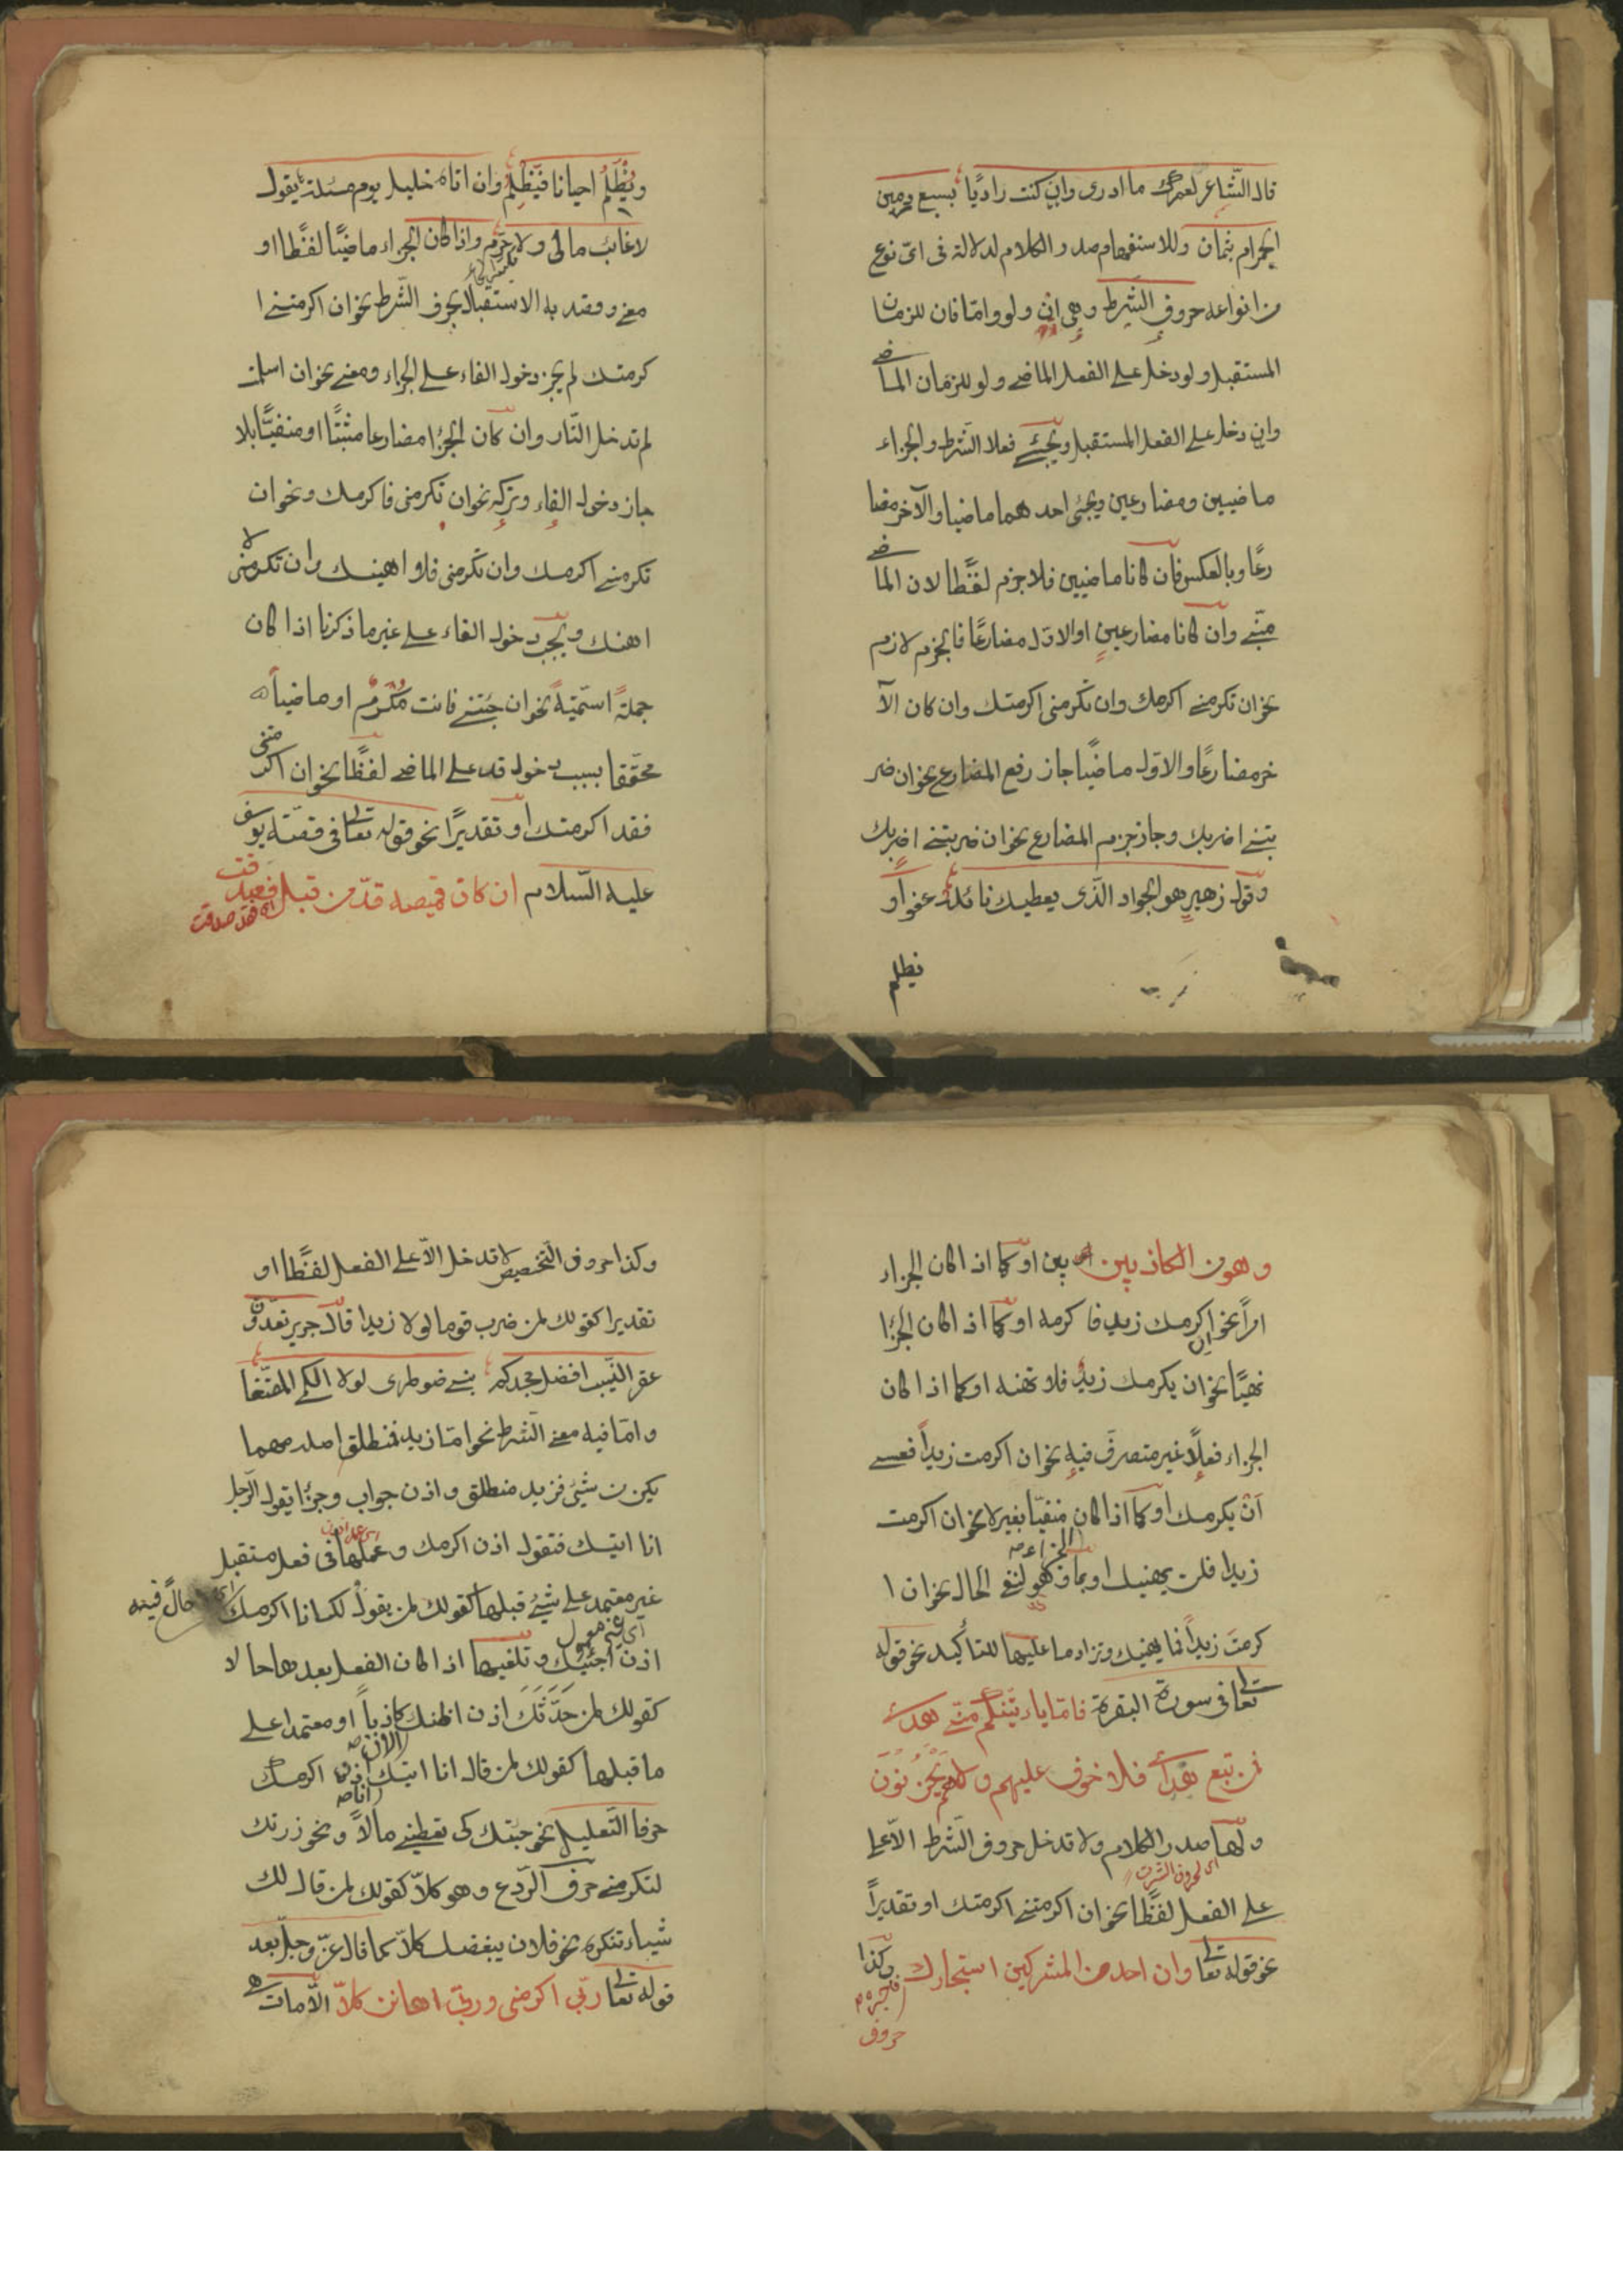 قال الشّاعر لعمرك ما ادرى وان كنت راديًا بسبع رمين
الجمرام بثمان وللاستفهام صدر الكلام لدلالة فى اىّ نوع
من انواعه حروف الشرط وهى ان ولو وامّا فان للزمان
المستقبل ولو دخل على الفعل الماضے ولو للزمان الماضے
وان دخل على الفعل المستقبل ويجئے فعلا الشرط والجزاء
ماضيين ومضارعين ويجئ احدهما ماضيا والآخر مضا
رعًا وبالعكس فان كانا ماضيين فلا جزم لفظًا لان الماضے
مبنّے وان كانا مضارعين او الاوّل مضارعًا فالجزم لازم
نحو ان تكرمنے اكرمك وان تكرمنى اكرمتك وان كان الآ
خر مضارعًا والاوّل ماضيًا جاز رفع المضارع نحو ان ضر
بتنے اضربك وجاز جزم المضارع نحو ان ضربتنے اضربك
وقول زهير هو الجواد الّذى يعطيك نائله عفوا و
يظلم
ويُظْلَمُ احيانا فيَظَّلِمُ وان اتاه خليل يوم مسئلة يقول
لا غائب مالى ولا حرم واذا كان الجزاء ماضيًا لفظًا او
معنے وقصد به الاستقبال بحرف الشّرط نحو ان اكرمتنے ا
كرمتك لم يجز دخول الفاء على الجزاء ومعنے نحو ان اسلمت
لم تدخل النّار وان كان الجزا مضارعا مثبتًا او منفيًّا بلا
جاز دخول الفاء وتركه نحو ان تكرمنى فاكرمك ونحو ان
تكرمنے اكرمك وان تكرمنى فلا اهينك وان تكرمنى لا
اهنك ويجب دخول الفاء على غير ما ذكرنا اذا كان
جملةً اسميّةً نحو ان جئتنے فانت مُكْرَمٌ او ماضياً
محقّقا بسبب دخول قد على الماضے لفظًا نحو ان اكرمتنى
فقد اكرمتك او تقديرًا نحو قوله تعالى فى قصّة يوسف
عليه السّلام ان كان قميصه قدّ من قبل فصدقت
اى فقد صدقت
وهو من الكاذبين او كما اذا كان الجزاء
امراً نحو ان اكرمك زيد فاكرمه او كما اذا كان الجزا
نهيًا نحو ان يكرمك زيد فلا تهنه او كما اذا كان
الجزاء فعلًا غير متصرف فيه نحو ان اكرمت زيداً فعسے
ان يكرمك او كما اذا كان منفيّا بغير لا نحو ان اكرمت
زيدا فلن يهينك او بما وهو لنفى الحال نحو ان ا
كرمت زيداً فما يهينك وتزاد ما عليها للتأكيد نحو قوله
تعالى فى سورة البقرة فامّا ياءتينكم منّے هدى
فمن تبع هداى فلا خوف عليهم ولا هم يَحْزَنُونَ
ولها صدر الكلام ولا تدخل حروف الشّرط الّا على
اى لحروف الشرط
على الفعل لفظًا نحو ان اكرمتنے اكرمتك او تقديراً
نحو قوله تعالى وان احد من المشركين استجارك وكذا
فاجره
حروف
وكذا حروف التّخصيص لا تدخل الّا على الفعل لفظًا او
تقديرا كقولك لمن ضرب قوما لولا زيدا قال جرير تعدّون
عقر النّيب افضل مجدكم بنے ضوطرى لولا الكمى المقنّعا
وامّا فيه معنے الشّرط نحو امّا زيد فمنطلق اصله مهما
يكن من شيئ فزيد منطلق واذن جواب وجزا يقول الرّجل
انا اتيك فتقول اذن اكرمك وعملها فى فعل مستقبل
غير معتمد على شيئ قبلها كقولك لمن يقول لك انا اكرمك
اذن اجيئك وتلغيها اذا كان الفعل بعدها حالا
كقولك لمن حَدَّثَكَ اذن اظنك كاذباً او معتمدا على
ما قبلها كقولك لمن قال انا اتيك اذن اكرمك
حرفا التّعليل نحو جئتك كى تعطينے مالاً ونحو زرتك
لتكرمنے حرف الرّدع وهو كلّا كقولك لمن قال لك
شياء تنكره نحو فلان يبغضك كلّا كما قال عزّ وجلّ بعد
قوله تعالى ربّى اكرمنى وربّى اهانن كلّا اللّامات